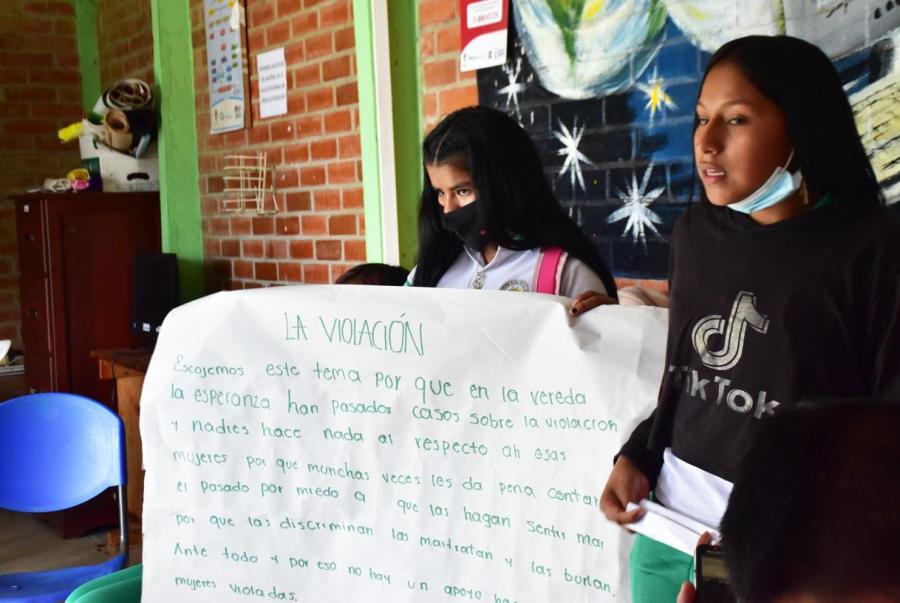 LA VIOLACIÓN
Escojemos este tema por que en la vereda
la esperanza han pasador casos sobre la violacion
y nadies hace nada al respecto ah esas
mujeres por que munchas veces les da pena contar
el pasado por miedo a que las hagan sentir mal
por que las discriminan las maltratan y las burlan.
Ante todo y por eso no hay un apoyo
mujeres violadas.
TikTok